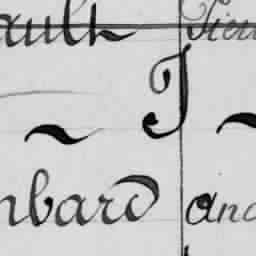 ault Pier
~ J ~
nbard and